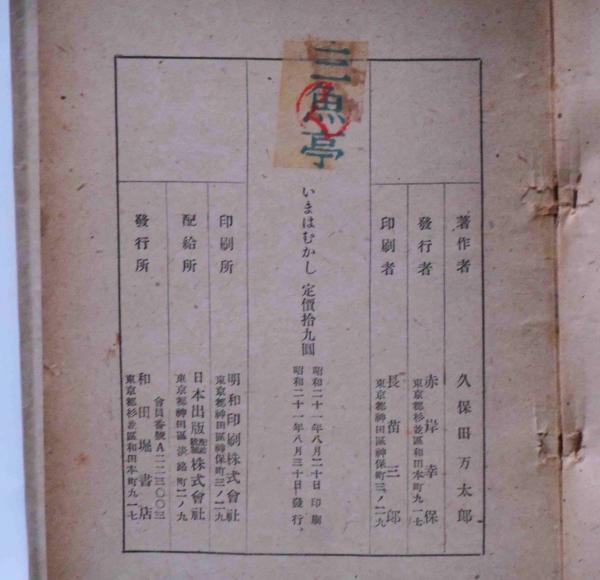 三魚亭
著作者 久保田万太郎
發行者 赤岸幸保
東京都杉並區和田本町九一七
印刷者 長苗三郎
東京都神田區神保町三ノ二九
いまはむかし 定價拾九圓
昭和二十一年八月二十日印刷
昭和二十一年八月三十日發行
印刷所 明和印刷株式會社
東京都神田區神保町三ノ二九
配給所 日本出版配給株式會社
東京都神田區淡路町二ノ九
會員番號A二二三〇〇三
發行所 和田堀書店
東京都杉並區和田本町九一七